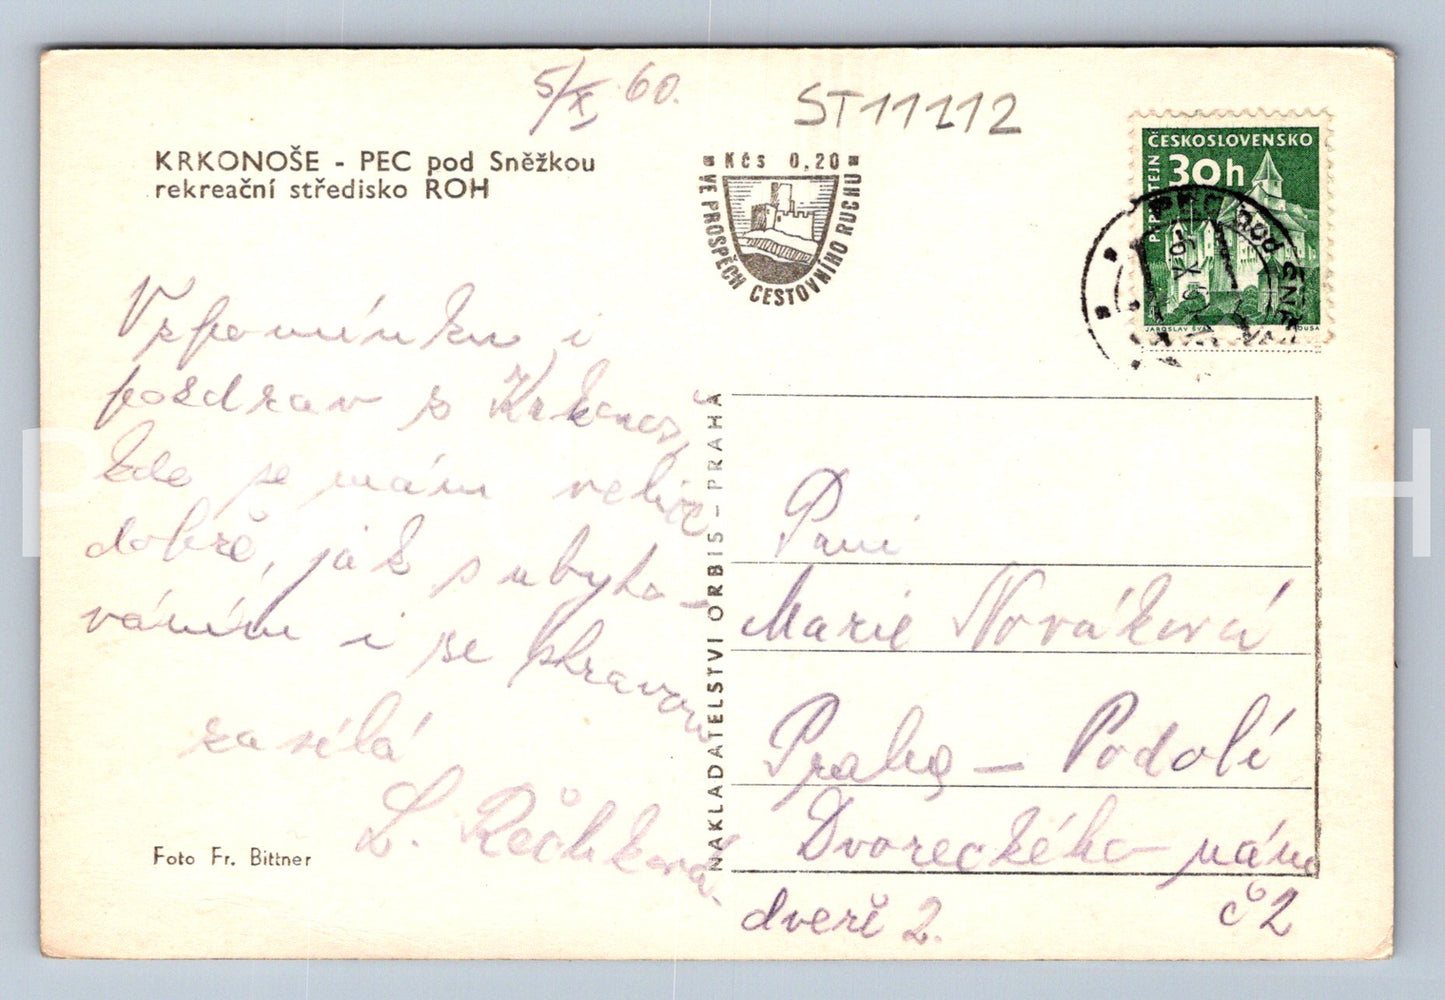 5/X 60.
ST11112
KRKONOŠE - PEC pod Sněžkou
rekreační středisko ROH
Kčs 0,20
VE PROSPĚCH CESTOVNÍHO RUCHU
ČESKOSLOVENSKO
30h
PERNŠTEJN
JAROSLAV ŠVAB
PEC pod SNĚŽKOU
Vzpomínku i
pozdrav z Krkonoš,
kde se mám velice
dobře, jak s ubyto-
váním i se stravou
zasílá
L. Růžičková.
Foto Fr. Bittner
NAKLADATELSTVÍ ORBIS - PRAHA
Paní
Marie Nováková
Praha - Podolí
Dvoreckého nám
č 2
dveře 2.